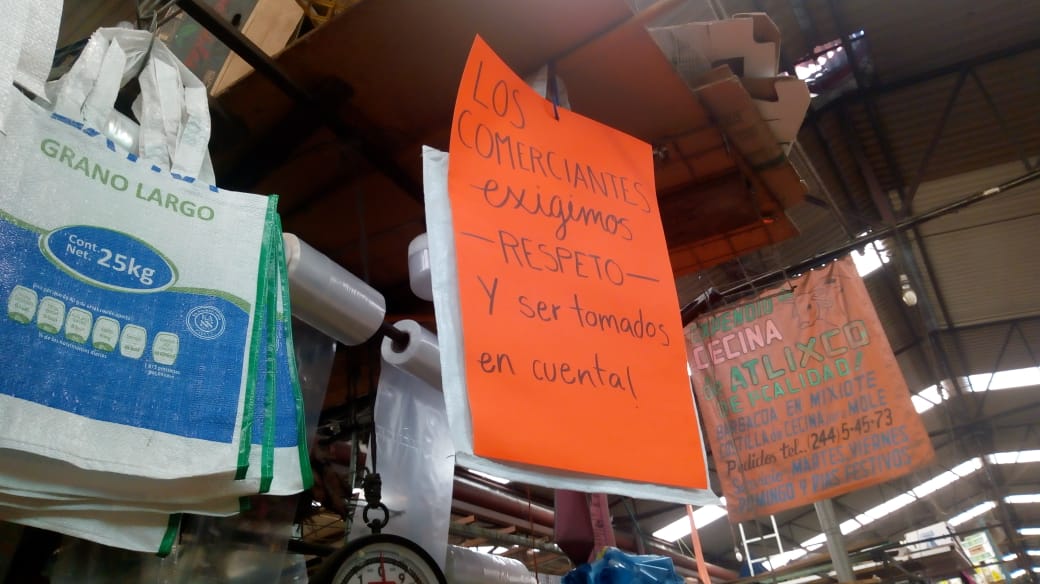 GRANO LARGO
Cont.
Net. 25kg
LOS
COMERCIANTES
exigimos
—RESPETO—
Y ser tomados
en cuenta!
CECINA
de ATLIXCO
DE 1ª CALIDAD!
BARBACOA EN MIXIOTE
COSTILLA de CECINA para MOLE
Pedidos tel.. (244) 5-45-73
Servicio MARTES VIERNES
DOMINGO Y DIAS FESTIVOS